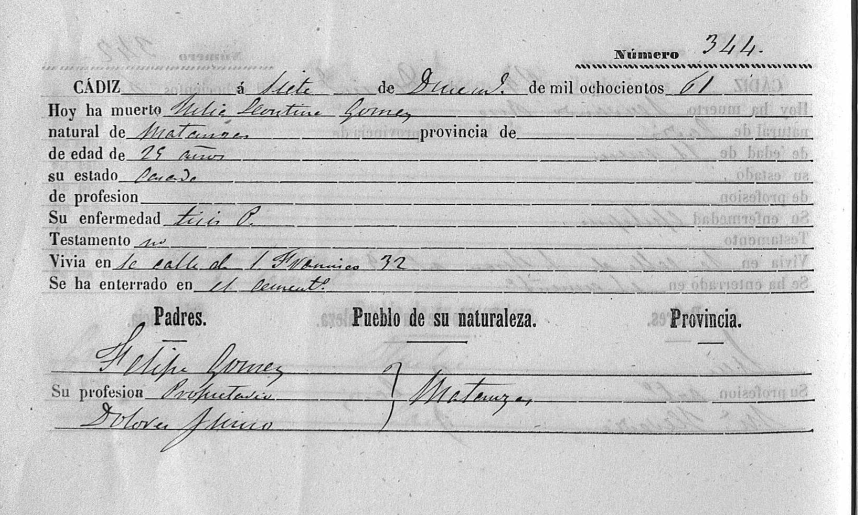 Número 344.
CÁDIZ á Siete de de mil ochocientos 61
Hoy ha muerto Gomez
natural de Matanzas provincia de
de edad de 29 años
su estado Casada
de profesion
Su enfermedad tisis P.
Testamento no
Vivia en la calle de S Francisco 32
Se ha enterrado en el cementº
Padres. Pueblo de su naturaleza. Provincia.
Felipe Gomez
Su profesion Propietario } Matanzas
Dolores